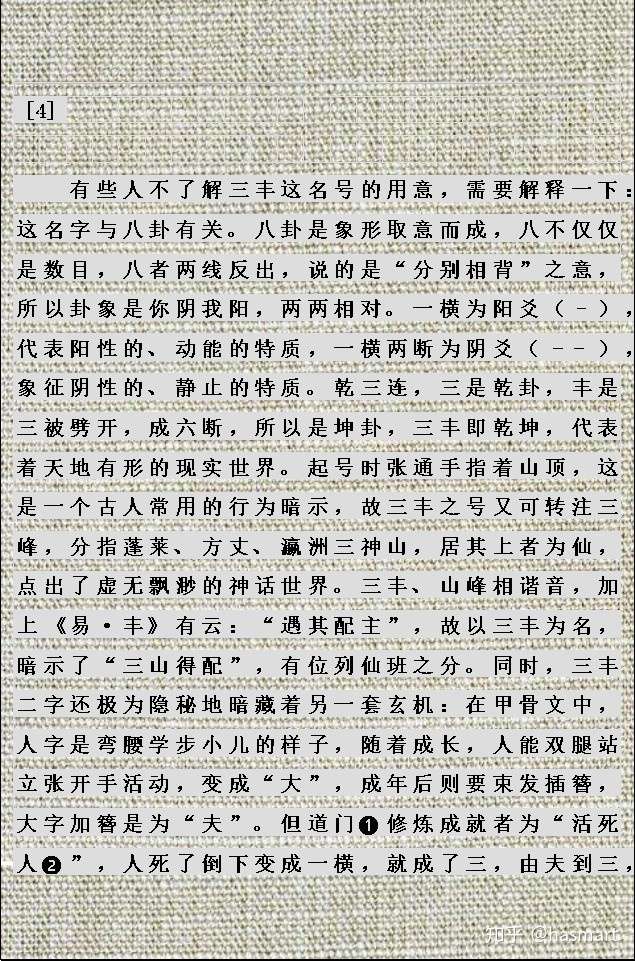 [4]
有些人不了解三丰这名号的用意，需要解释一下：
这名字与八卦有关。八卦是象形取意而成，八不仅仅
是数目，八者两线反出，说的是“分别相背”之意，
所以卦象是你阴我阳，两两相对。一横为阳爻（-），
代表阳性的、动能的特质，一横两断为阴爻（--），
象征阴性的、静止的特质。乾三连，三是乾卦，丰是
三被劈开，成六断，所以是坤卦，三丰即乾坤，代表
着天地有形的现实世界。起号时张通手指着山顶，这
是一个古人常用的行为暗示，故三丰之号又可转注三
峰，分指蓬莱、方丈、瀛洲三神山，居其上者为仙，
点出了虚无飘渺的神话世界。三丰、山峰相谐音，加
上《易·丰》有云：“遇其配主”，故以三丰为名，
暗示了“三山得配”，有位列仙班之分。同时，三丰
二字还极为隐秘地暗藏着另一套玄机：在甲骨文中，
人字是弯腰学步小儿的样子，随着成长，人能双腿站
立张开手活动，变成“大”，成年后则要束发插簪，
大字加簪是为“夫”。但道门❶修炼成就者为“活死
人❷”，人死了倒下变成一横，就成了三，由夫到三，
知乎 @hasmart